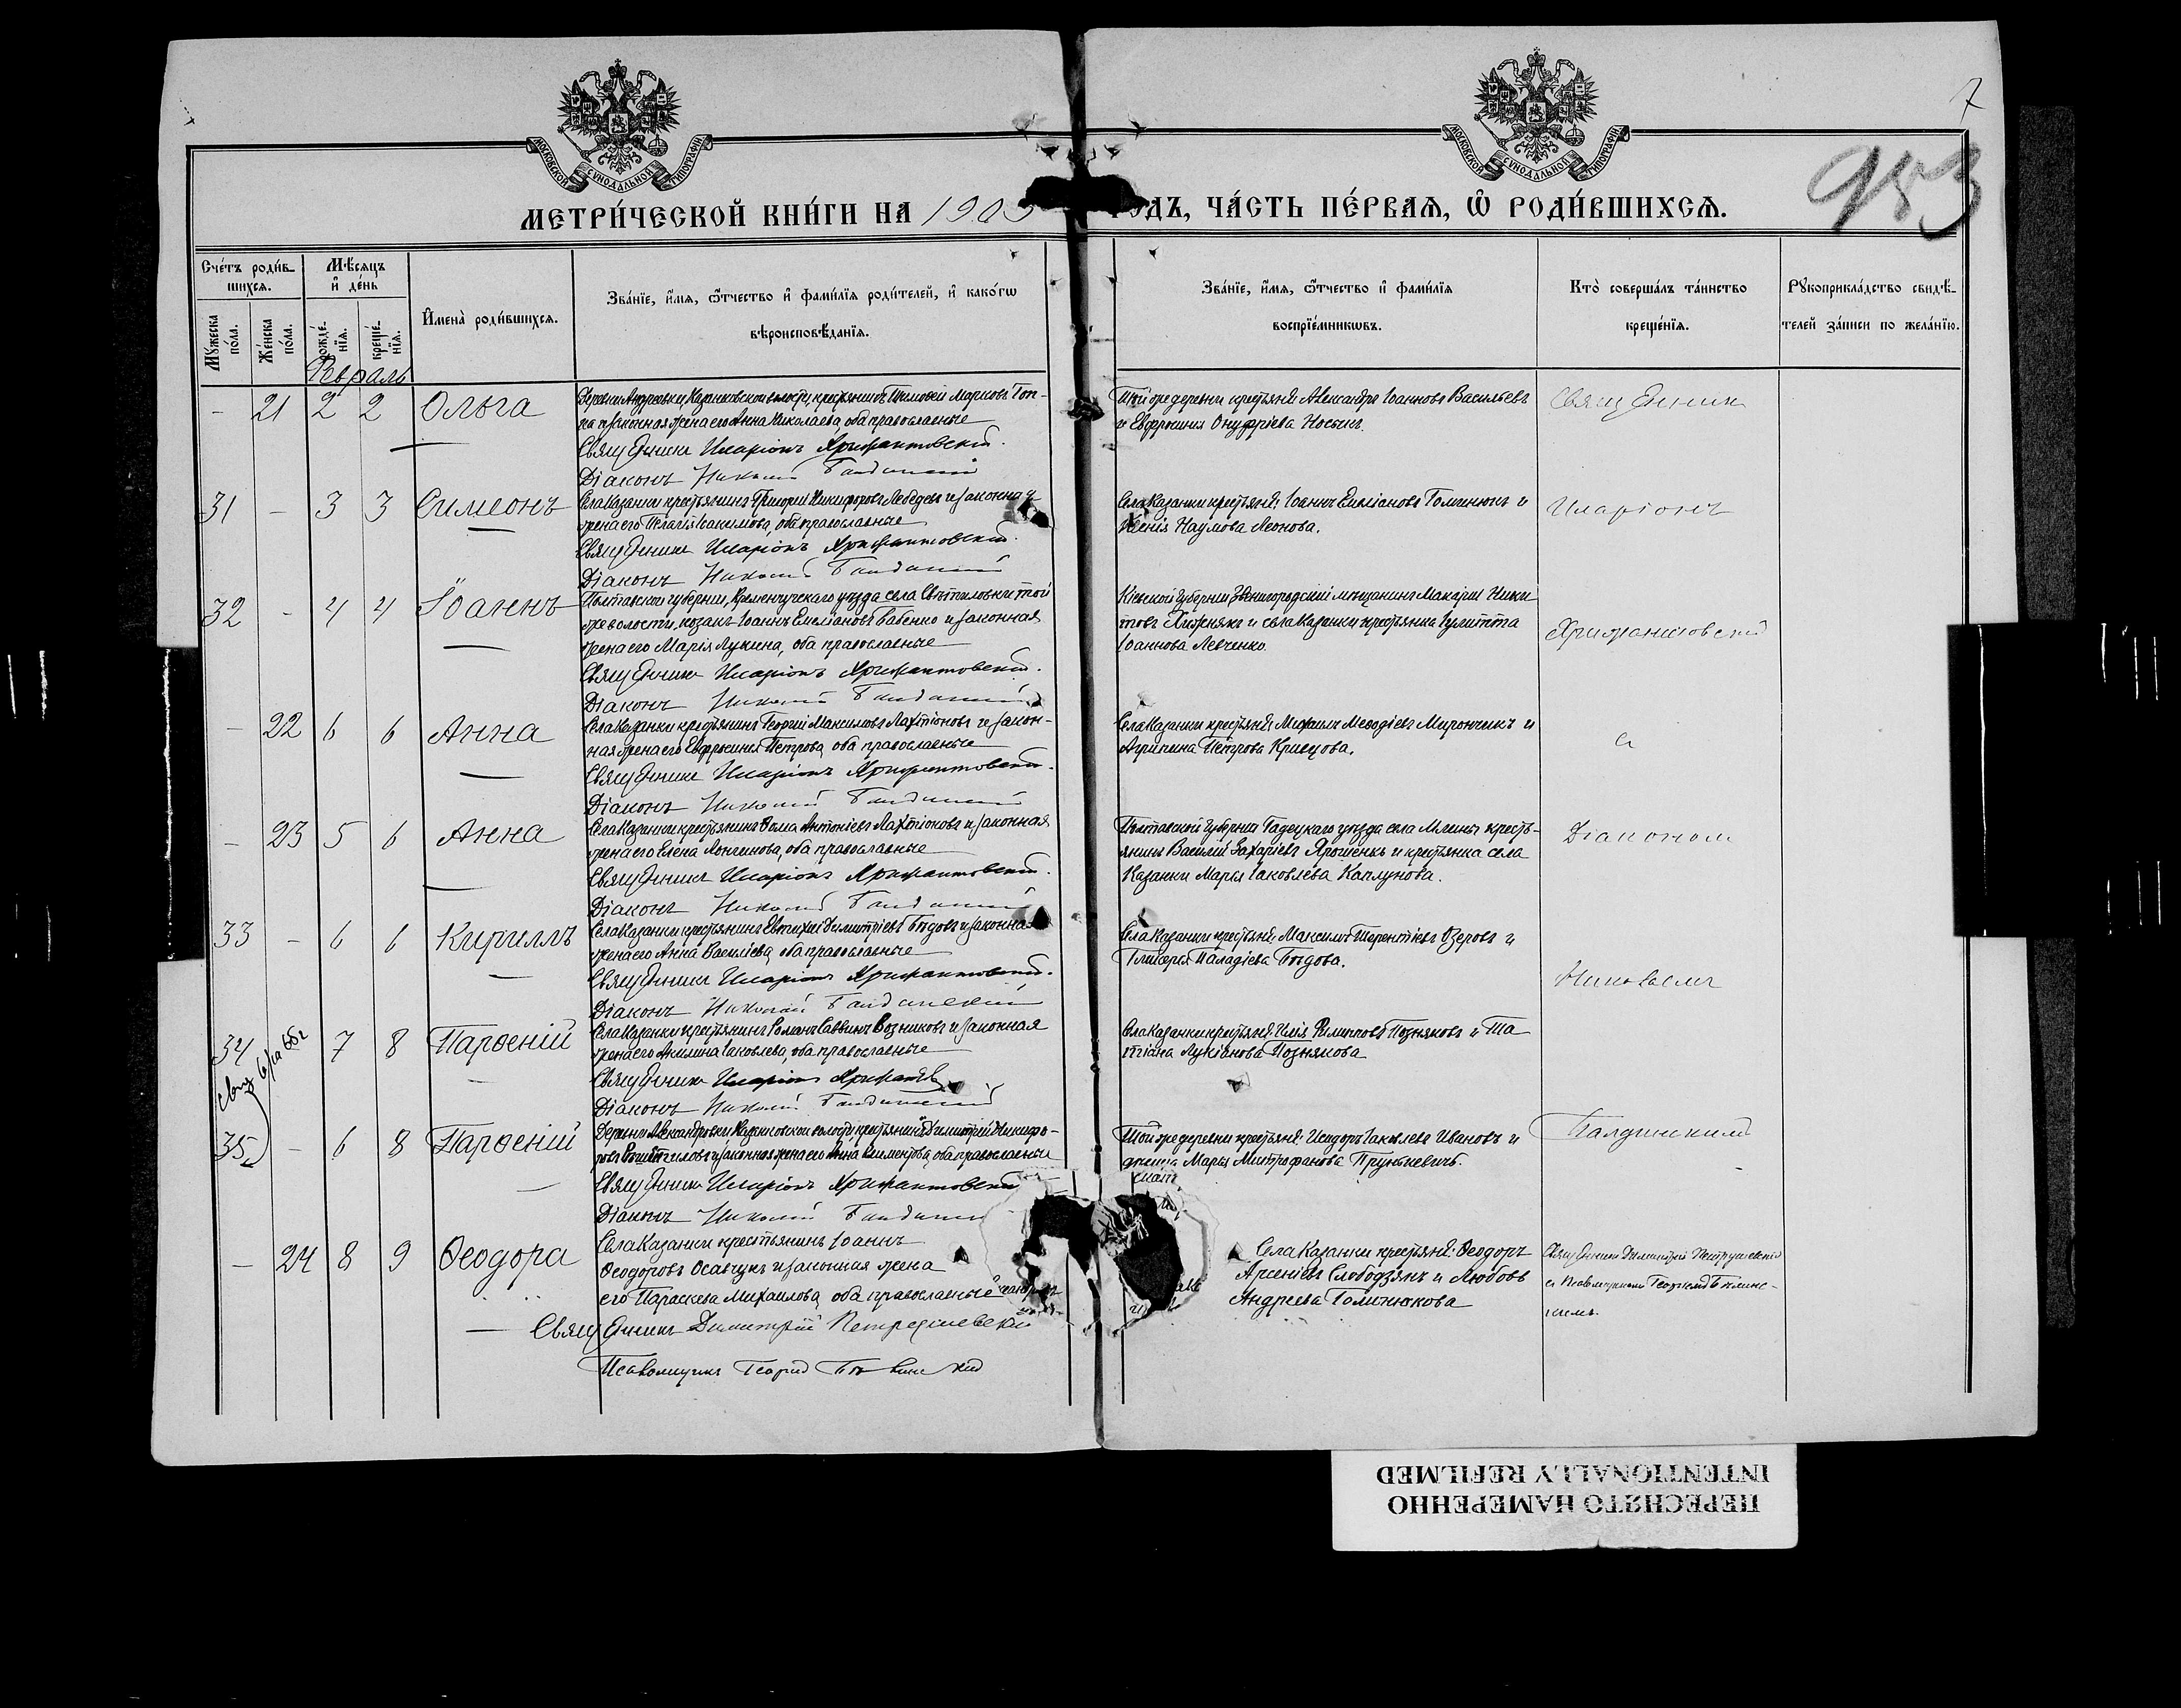 7
953
МОСКОВСКОЙ СѴНОДАЛЬНОЙ ТИПОГРАФІИ
МОСКОВСКОЙ СѴНОДАЛЬНОЙ ТИПОГРАФІИ
МЕТРИ́ЧЕСКОЙ КНИ́ГИ НА 190
ГОДЪ, ЧА́СТЬ ПЕ́РВАѦ, Ѡ РОДИ́ВШИХСѦ.
Сче́тъ роди́в-
шихсѧ.
Мѣ́сѧцъ
и҆ де́нь
Мꙋ́жеска
по́ла.
Же́нска
по́ла.
рожде́-
нїѧ.
креще́-
нїѧ.
И҆мена̀ роди́вшихсѧ.
Зва́нїе, и҆́мѧ, ѻ҆́тчество и҆ фами́лїѧ роди́телей, и҆ како́гѡ
вѣроисповѣ́данїѧ.
Зва́нїе, и҆́мѧ, ѻ҆́тчество и҆ фами́лїѧ
воспрїе́мникѡвъ.
Кто̀ соверша́лъ та́инство
креще́нїѧ.
Рꙋкоприкла́дство свидѣ́-
телей за́писи по жела́нїю.
Февраль
- 21 2 2 Ольга
Деревни Андреевки, Казанковской волости, крестьянинъ Тимофей Марковъ Гон-
и законная жена его Анна Николаева, оба православные
Священникъ Иларіонъ Хрисантовскій.
Діаконъ Николай
Той же деревни крестьяне: Александръ Іоанновъ Васильевъ
и Евфросинія Онуфріева
Священник
31 - 3 3 Симеонъ
Села Казанки крестьянинъ Григорій Никифоровъ Лебедевъ и законная
жена его Пелагія Іоакимова, оба православные
Священникъ Иларіонъ Хрисантовскій.
Діаконъ Николай
Села Казанки крестьяне: Іоаннъ Емиліановъ Гоминюкъ и
Ксенія Наумова Леонова.
Иларіонъ
32 - 4 4 Іоаннъ
Полтавской губерніи, Кременчугскаго уѣзда села Свѣтиловки той
же волости, козакъ Іоаннъ Емеліановъ Бабенко и законная
жена его Марія Лукина, оба православные
Священникъ Иларіонъ Хрисантовскій.
Діаконъ Николай
Кіевской Губерніи, Звенигородскій мѣщанинъ Макарій Ники-
товъ Хижнякъ и села Казанки крестьянка Іулитта
Іоаннова Левченко.
Хрисантовскій
- 22 6 6 Анна
Села Казанки крестьянинъ Георгій Максимовъ Лахтіоновъ и закон-
ная жена его Евфросинія Петрова, оба православные
Священникъ Иларіонъ Хрисантовскій.
Діаконъ Николай
Села Казанки крестьяне: Михаилъ Меѳодіевъ Мирончикъ и
Агрипина Петрова Кривцова.
съ
- 23 5 6 Анна
Села Казанки крестьянинъ Ѳома Антоніевъ Лахтіоновъ и законная
жена его Елена Лонгинова, оба православные
Священникъ Иларіонъ Хрисантовскій.
Діаконъ Николай
Полтавской Губерніи Гадецкаго уѣзда села Млины кресть-
янинъ Василій Захаріевъ Ярошенко и крестьянка села
Казанки Марья Іаковлева Каплунова.
Діакономъ
33 - 6 6 Кириллъ
Села Казанки крестьянинъ Евтихій Димитріевъ Бѣдовъ и законная
жена его Анна Василіева, оба православные
Священникъ Иларіонъ Хрисантовскій.
Діаконъ Николай
Села Казанки крестьяне: Максимъ Терентіевъ Озеровъ и
Гликерья Паладіева Бѣдова.
Николаемъ
34 7 8 Парѳеній
Села Казанки крестьянинъ Романъ Саввинъ Возниковъ и законная
жена его Акилина Іаковлева, оба православные
Священникъ Иларіонъ
Діаконъ Николай
Села Казанки крестьяне: Илія Филипповъ Позняковъ и Та-
тіана Лукіанова Познякова
35 - 6 8 Парѳеній
Деревни Александровки Казанковской волости, крестьянинъ Димитрій Никифо-
ровъ и законная жена его Анна Климентова, оба православные
Священникъ Иларіонъ Хрисантовскій
Діаконъ Николай
Той же деревни крестьяне: Исидоръ Іаковлевъ Ивановъ и
Марья Митрофанова
- 24 8 9 Ѳеодора
Села Казанки крестьянинъ Іоаннъ
Ѳеодоровъ Осавчукъ и законная жена
его Параскева Михаилова, оба православные
Священникъ Димитрій
Псаломщикъ Георгій
Села Казанки крестьяне: Ѳеодоръ
Арсеніевъ Слободзянъ и Любовь
Андреева Гоминюкова
Священникъ Димитрій
съ Псаломщикомъ Георгіемъ
ПЕРЕСНЯТО НАМЕРЕННО
INTENTIONALLY REFILMED